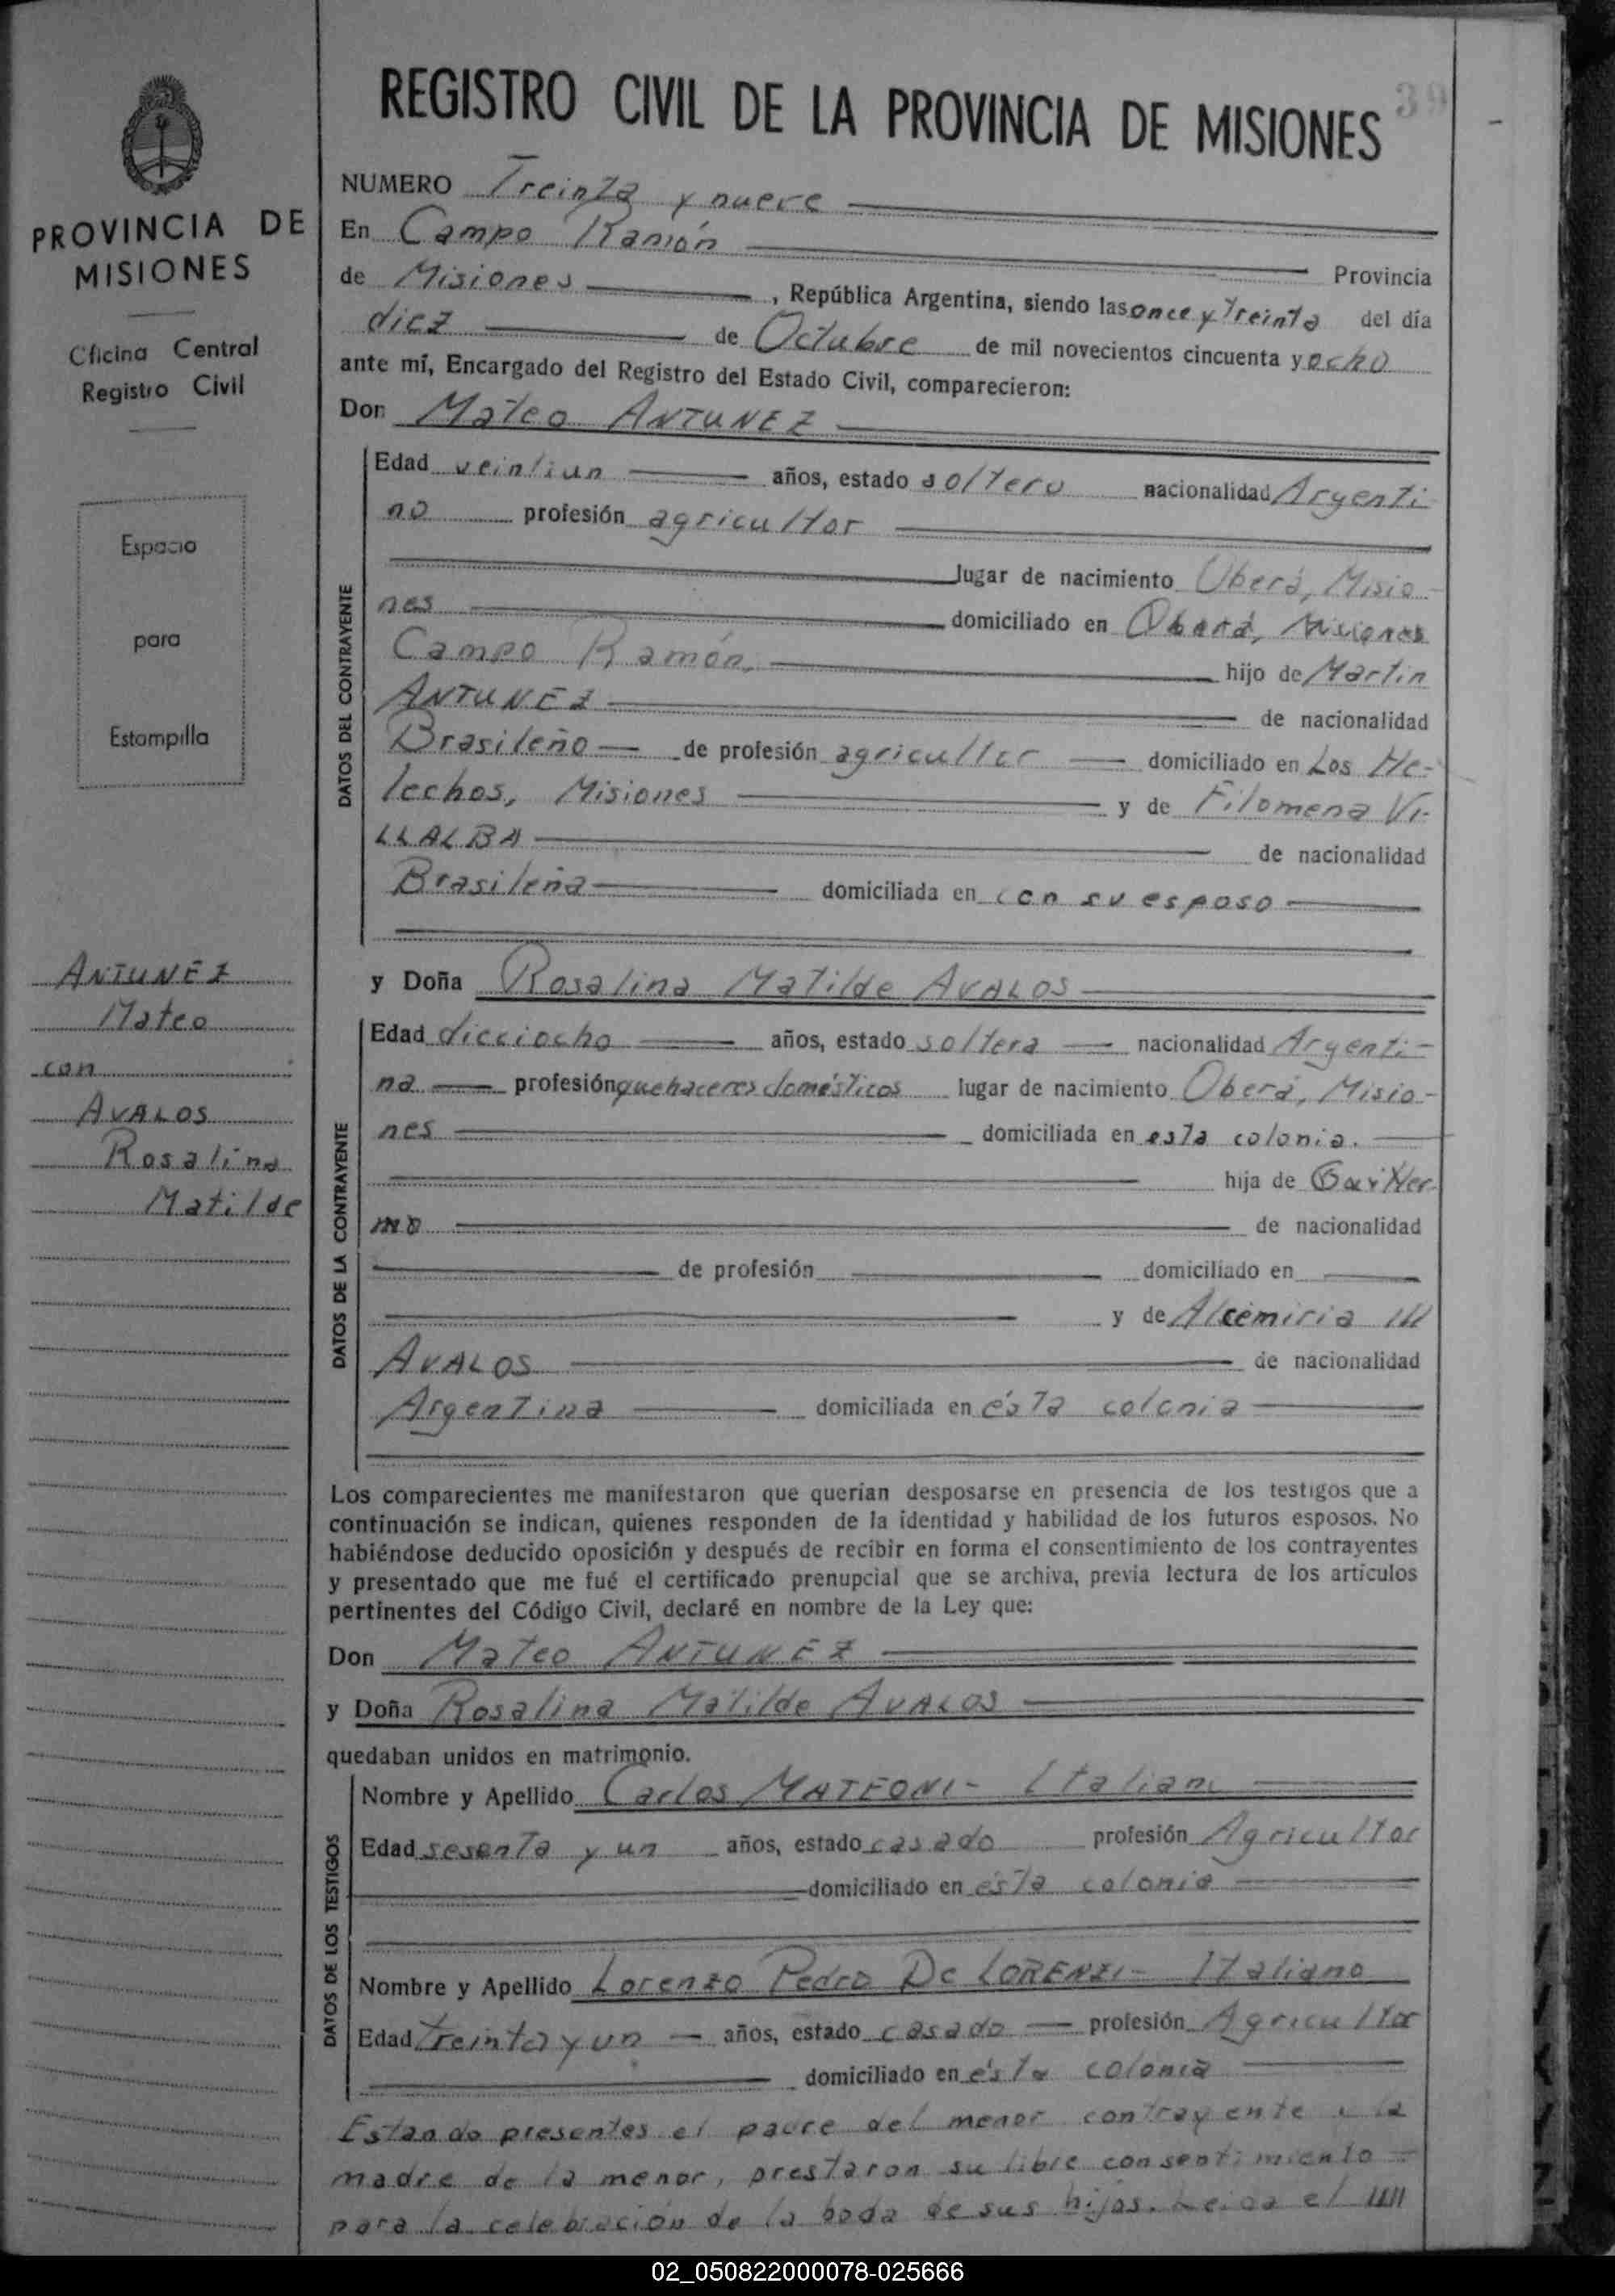 REGISTRO CIVIL DE LA PROVINCIA DE MISIONES
39
PROVINCIA DE
MISIONES
Oficina Central
Registro Civil
Espacio
para
Estampilla
ANTUNEZ
Mateo
con
AVALOS
Rosalina
Matilde
NUMERO Treinta y nueve
En Campo Ramón Provincia
de Misiones, República Argentina, siendo las once y Treinta del día
diez de Octubre de mil novecientos cincuenta y ocho
ante mí, Encargado del Registro del Estado Civil, comparecieron:
Don Mateo ANTUNEZ
DATOS DEL CONTRAYENTE
Edad veintiun años, estado soltero nacionalidad Argenti-
no profesión agricultor
lugar de nacimiento Oberá, Misio-
nes domiciliado en Oberá, Misiones
Campo Ramón, hijo de Martin
ANTUNEZ de nacionalidad
Brasileño de profesión agricultor domiciliado en Los He-
lechos, Misiones y de Filomena Vi-
LLALBA de nacionalidad
Brasileña domiciliada en con su esposo
y Doña Rosalina Matilde AVALOS
DATOS DE LA CONTRAYENTE
Edad dieciocho años, estado soltera nacionalidad Argenti-
na profesión quehaceres domésticos lugar de nacimiento Oberá, Misio-
nes domiciliada en esta colonia.
hija de
de nacionalidad
de profesión domiciliado en
y de
AVALOS de nacionalidad
Argentina domiciliada en ésta colonia
Los comparecientes me manifestaron que querían desposarse en presencia de los testigos que a
continuación se indican, quienes responden de la identidad y habilidad de los futuros esposos. No
habiéndose deducido oposición y después de recibir en forma el consentimiento de los contrayentes
y presentado que me fué el certificado prenupcial que se archiva, previa lectura de los artículos
pertinentes del Código Civil, declaré en nombre de la Ley que:
Don Mateo ANTUNEZ
y Doña Rosalina Matilde AVALOS
quedaban unidos en matrimonio.
DATOS DE LOS TESTIGOS
Nombre y Apellido Carlos MATEONI- Italiano
Edad sesenta y un años, estado casado profesión Agricultor
domiciliado en ésta colonia
Nombre y Apellido Lorenzo Pedro De LORENZI- Italiano
Edad treinta y un años, estado casado profesión Agricultor
domiciliado en ésta colonia
Estando presentes el padre del menor contrayente y la
madre de la menor, prestaron su libre consentimiento
para la celebración de la boda de sus hijos. Leida el
02_050822000078-025666